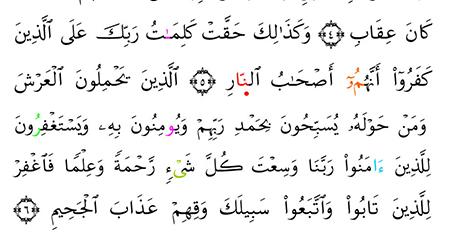 كَانَ عِقَابِ ﴿٤﴾ وَكَذَٰلِكَ حَقَّتْ كَلِمَـٰتُ رَبِّكَ عَلَى ٱلَّذِينَ
كَفَرُوٓا۟ أَنَّهُمُۥٓ أَصْحَـٰبُ ٱلنَّارِ ﴿٥﴾ ٱلَّذِينَ يَحْمِلُونَ ٱلْعَرْشَ
وَمَنْ حَوْلَهُۥ يُسَبِّحُونَ بِحَمْدِ رَبِّهِمْ وَيُومِنُونَ بِهِۦ وَيَسْتَغْفِرُونَ
لِلَّذِينَ ءَامَنُوا۟ رَبَّنَا وَسِعْتَ كُلَّ شَىْءٍ رَّحْمَةً وَعِلْمًا فَٱغْفِرْ
لِلَّذِينَ تَابُوا۟ وَٱتَّبَعُوا۟ سَبِيلَكَ وَقِهِمْ عَذَابَ ٱلْجَحِيمِ ﴿٦﴾